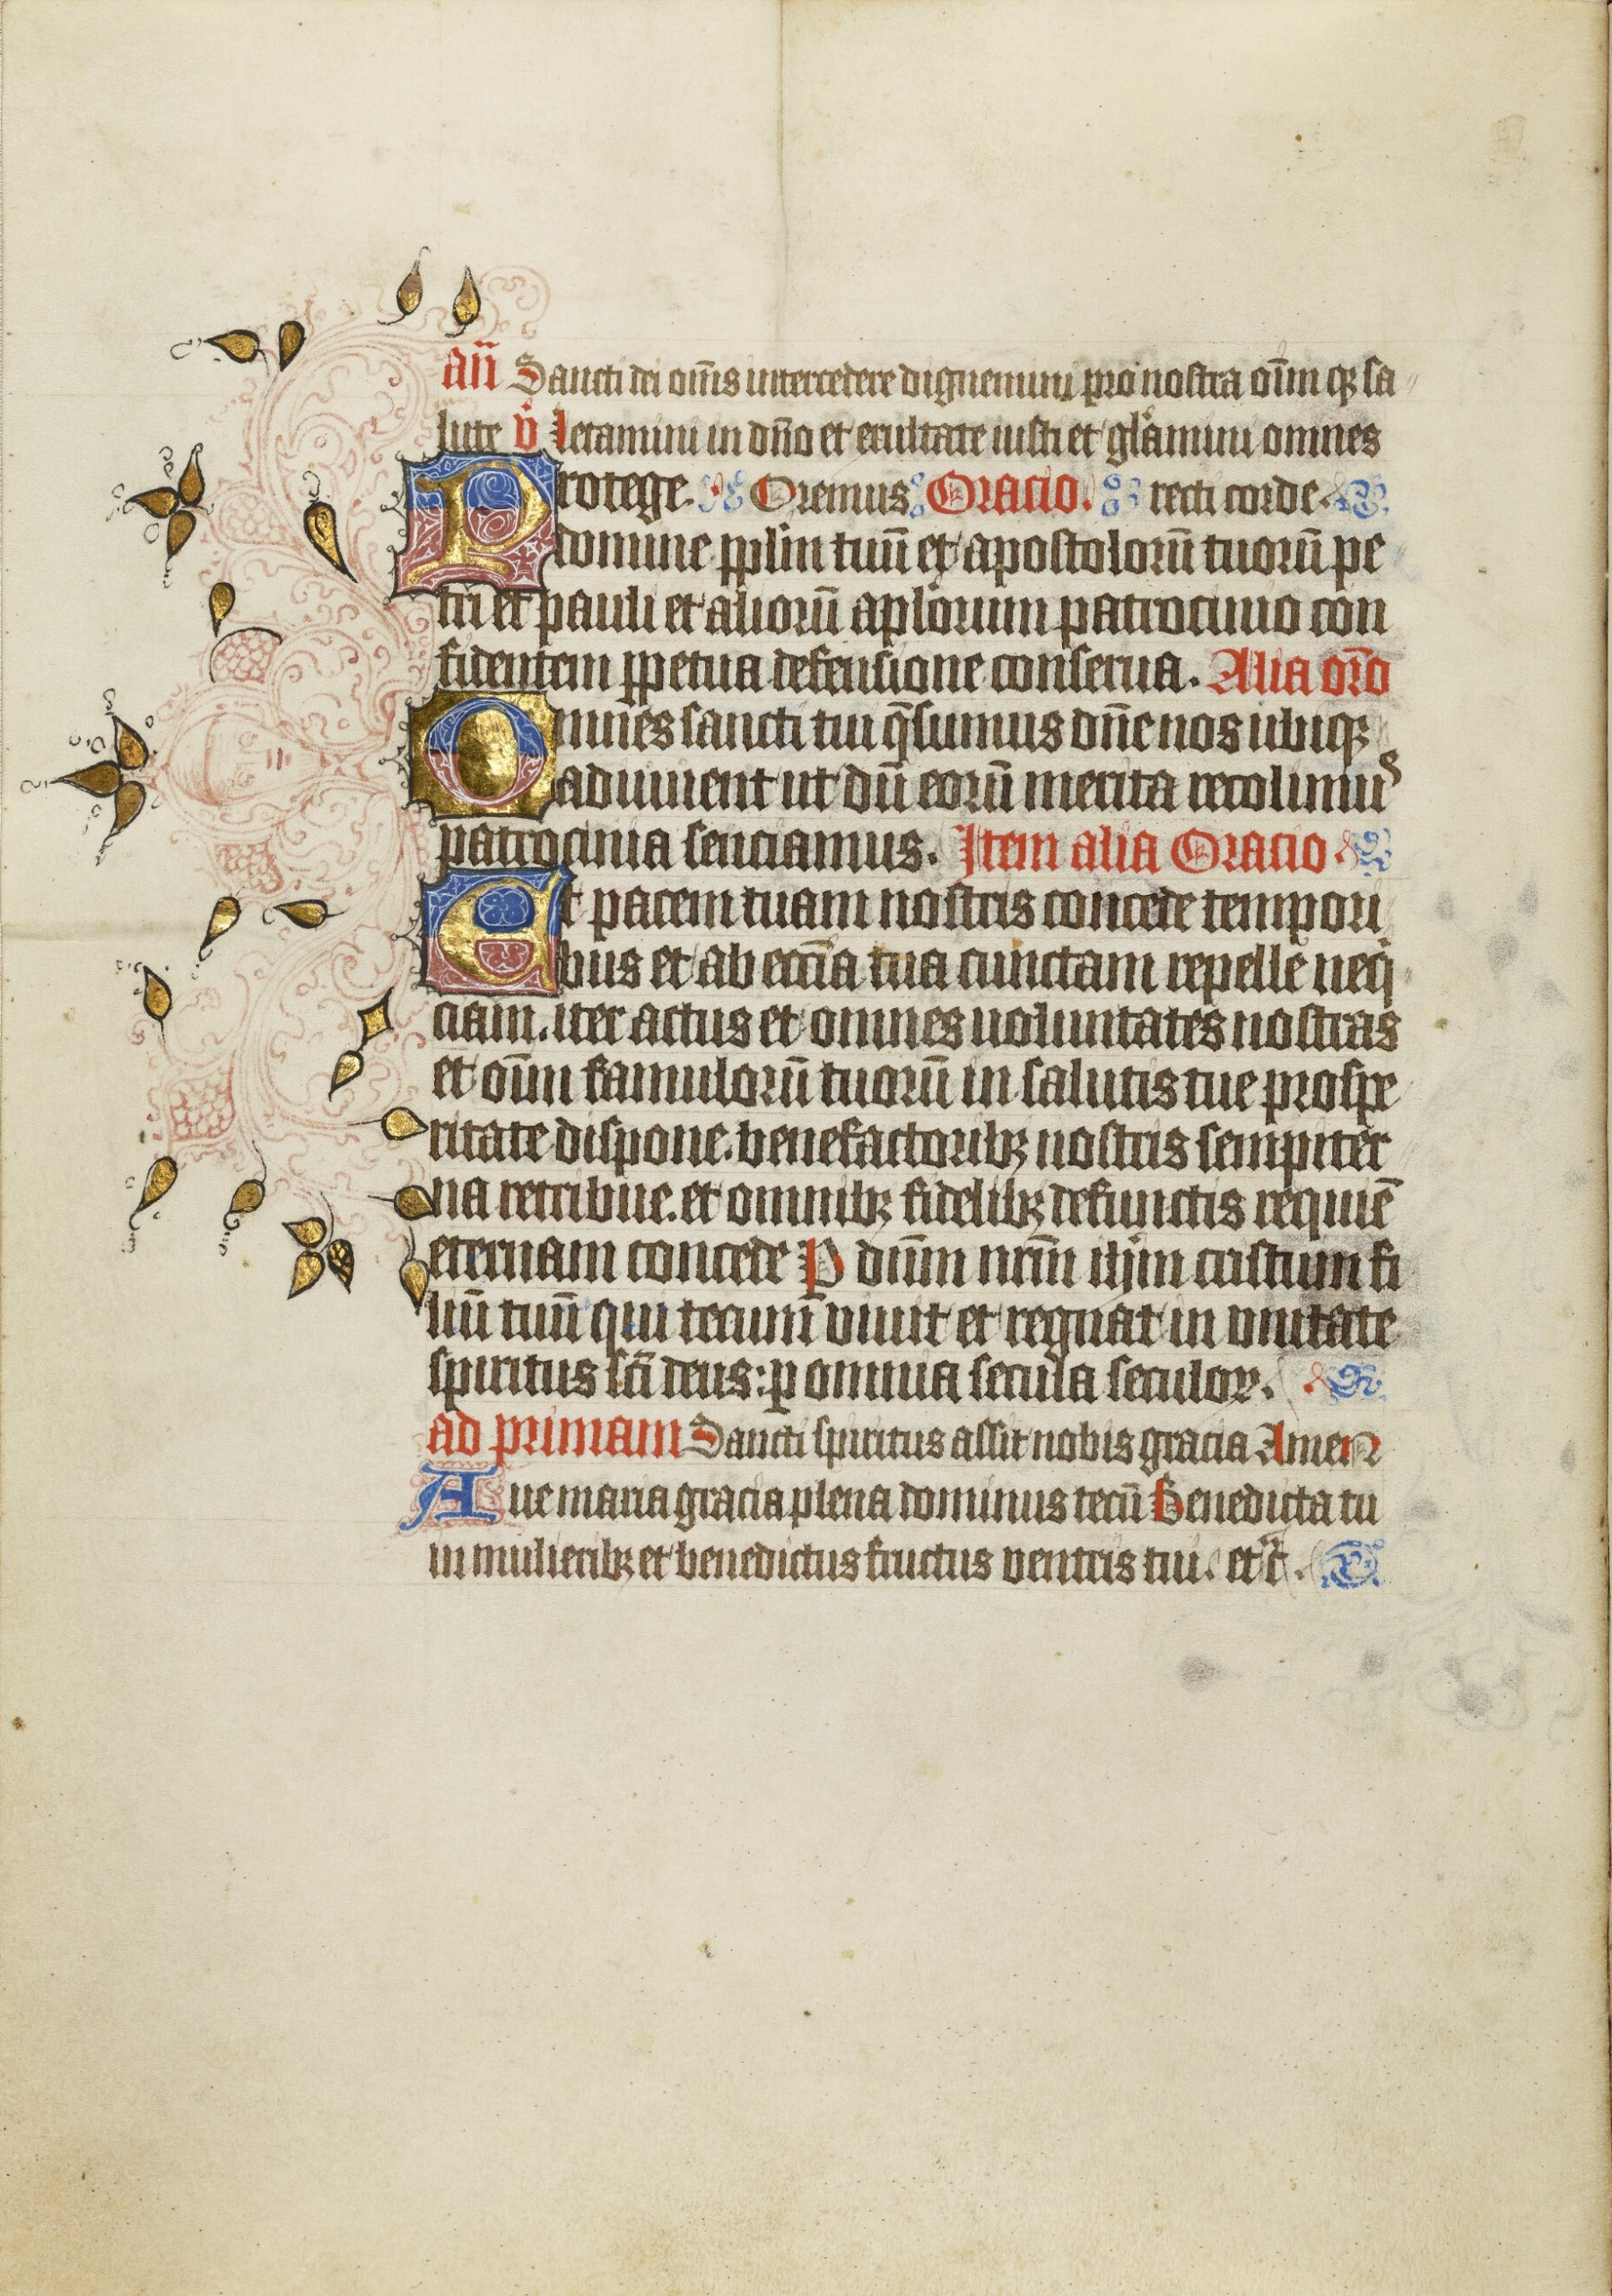 an̄ Sancti dei om̄s intercedere dignemini pro nostra om̄īq; sa
lute v̇ letamini in dn̄o et exultate iusti et gl̄amini omnes
Protege. Oremus Oracio. recti corde.
domine pplm̄ tuū et apostolorū tuorū pe
tri et pauli et aliorū apl̄orum patrocinio con
fidentem ꝑpetua defensione conserua. Alia or̄o
Omnes sancti tui q̄sumus dn̄e nos ubiq;
adiuuent ut dū eorū merita recolimus
patrocinia senciamus. Item alia Oracio.
Et pacem tuam nostris concede tempori
bus et ab eccl̄ia tua cunctam repelle neq̇
ciam. iter actus et omnes uoluntates nostras
et om̄i famulorū tuorū in salutis tue prospe
ritate dispone. benefactorib; nostris sempiter
na retribue. et omnib; fidelib; defunctis requiē
eternam concede P dn̄m nr̄m ihm̄ cristum fi
liū tuū qui tecum viuit et regnat in vnitate
spiritus sc̄i deus: ꝑ omnia secula seculoꝝ.
ad primam Sancti spiritus assit nobis gracia Amen
Aue maria gracia plena dominus tecū Benedicta tu
in mulierib; et benedictus fructus ventris tui. etc̄.